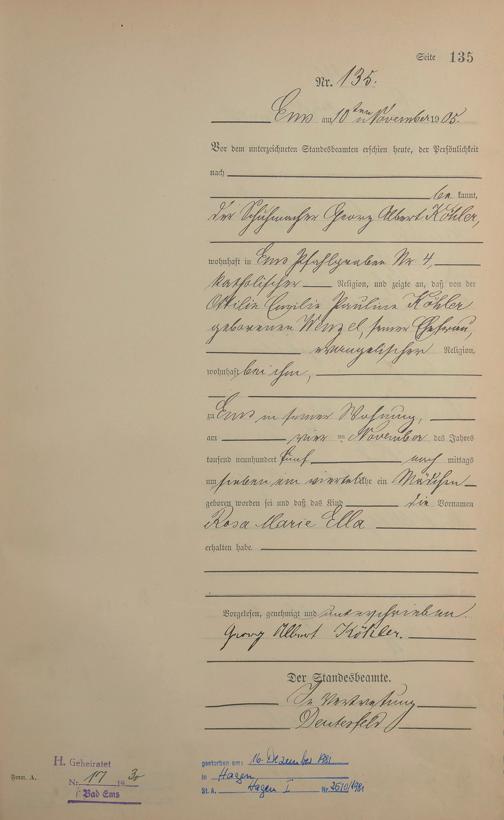 Seite 135
Nr. 135.
Ems am 10ten November 1905.
Vor dem unterzeichneten Standesbeamten erschien heute, der Persönlichkeit
nach
be kannt,
der Schuhmacher Georg Albert Köhler,
wohnhaft in Ems Pfahlgraben Nr 4,
katholischer Religion, und zeigte an, daß von der
Ottilie Emilie Pauline Köhler
geborenen Wenzel, seiner Ehefrau,
evangelischer Religion,
wohnhaft bei ihm,
zu Ems in seiner Wohnung,
am vier ten November des Jahres
tausend neunhundert fünf nach mittags
um sieben ein viertel Uhr ein Mädchen
geboren worden sei und daß das Kind die Vornamen
Rosa Marie Ella
erhalten habe.
Vorgelesen, genehmigt und unterschrieben.
Georg Albert Köhler.
Der Standesbeamte.
In Vertretung
H. Geheiratet
Nr. 17 1930
Bad Ems
Form. A.
gestorben am: 16. Dezember 1981
in Hagen
St. A. Hagen I Nr. /1981